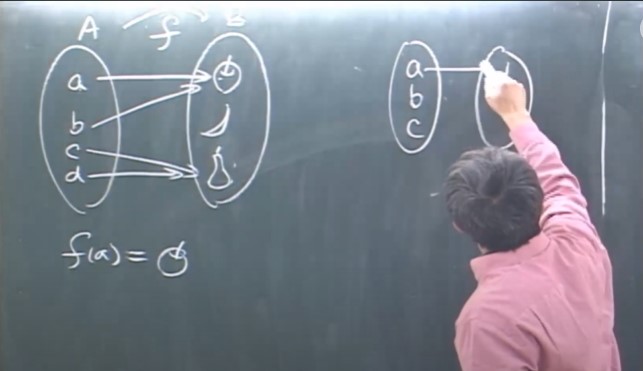 A f B
a
b
c
d
f(a) =
a
b
c